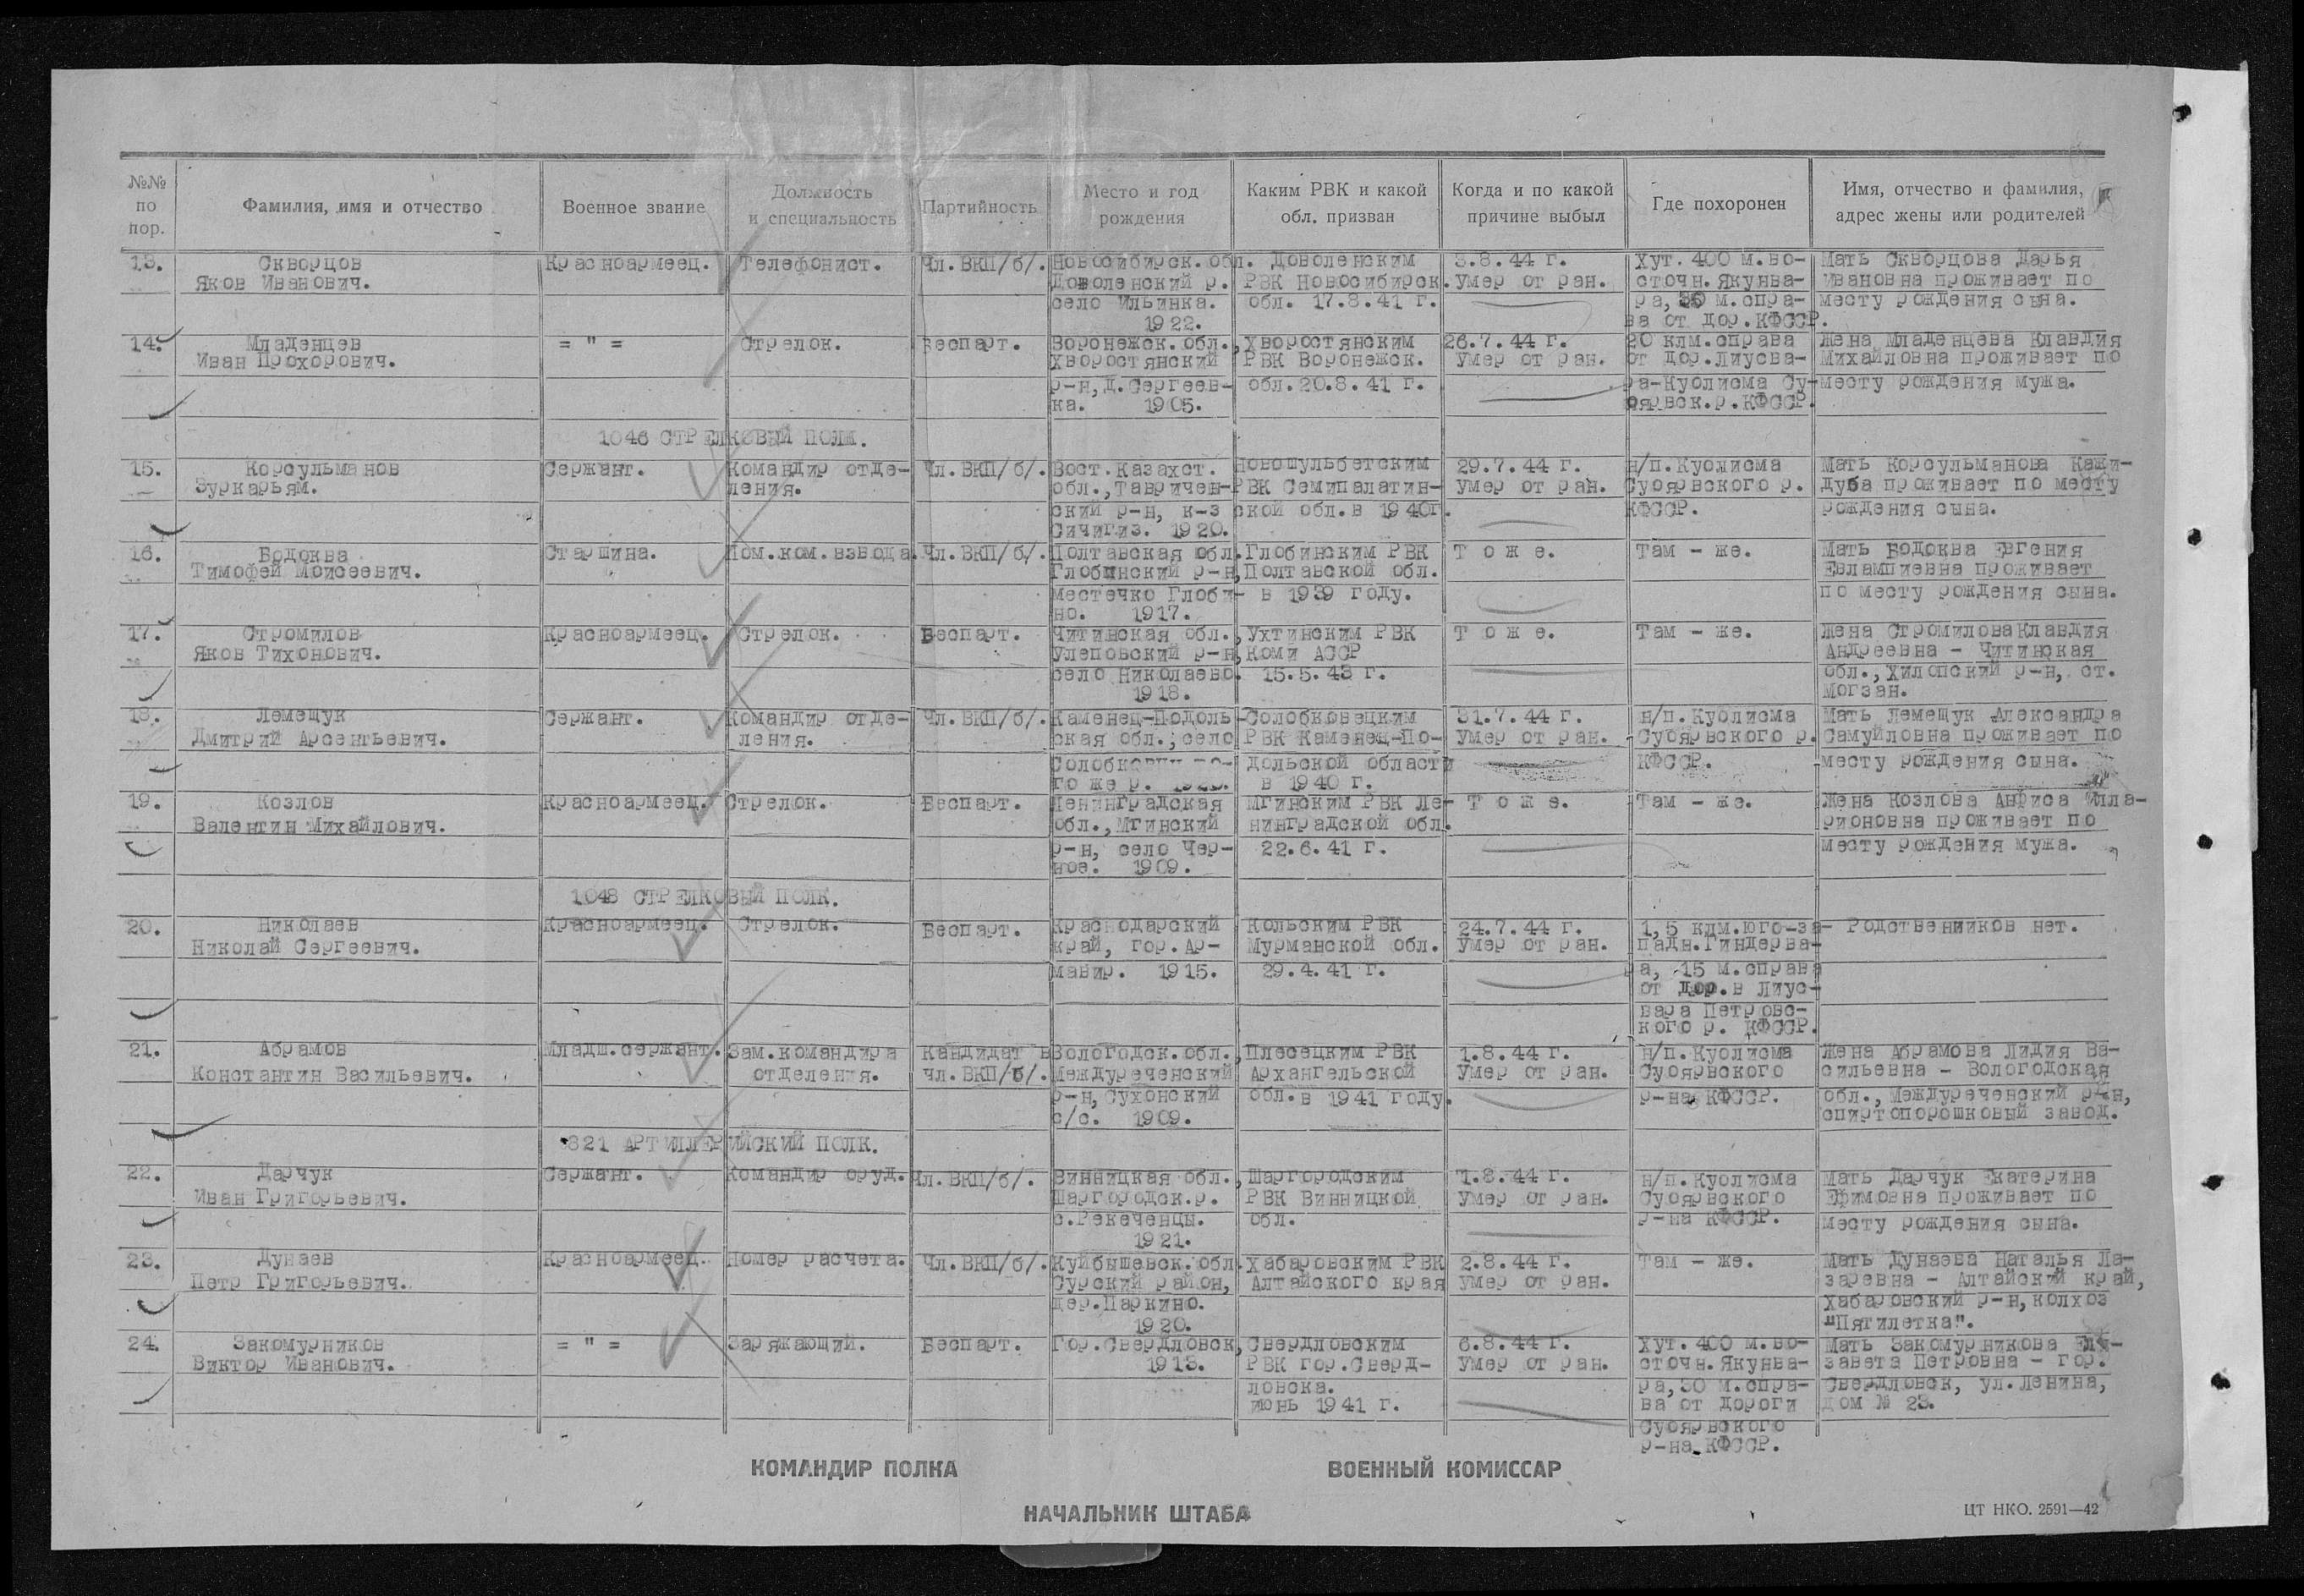 №№ по пор.
Фамилия, имя и отчество
Военное звание
Должность и специальность
Партийность
Место и год рождения
Каким РВК и какой обл. призван
Когда и по какой причине выбыл
Где похоронен
Имя, отчество и фамилия, адрес жены или родителей
13.
Скворцов
Яков Иванович.
Красноармеец.
Телефонист.
Чл. ВКП/б/.
Новосибирск. обл.
Доволенский р.
село Ильинка.
1922.
Доволенским
РВК Новосибирск.
обл. 17.8.41 г.
3.8.44 г.
Умер от ран.
Хут. 400 м. во-
сточн. Якунва-
ра, 30 м. спра-
ва от дор. КФССР.
Мать Скворцова Дарья
Ивановна проживает по
месту рождения сына.
14.
Младенцев
Иван Прохорович.
= " =
Стрелок.
Беспарт.
Воронежск. обл.,
Хворостянский
р-н, д. Сергеев-
ка. 1905.
Хворостянским
РВК Воронежск.
обл. 20.8.41 г.
26.7.44 г.
Умер от ран.
20 клм. справа
от дор. Лиусва-
ра-Куолисма Су-
оярвск. р. КФССР.
Жена Младенцева Клавдия
Михайловна проживает по
месту рождения мужа.
1046 СТРЕЛКОВЫЙ ПОЛК.
15.
Корсульманов
Зуркарьям.
Сержант.
Командир отде-
ления.
Чл. ВКП/б/.
Вост. Казахст.
обл., Тавричен-
ский р-н, к-з
Сичигиз. 1920.
Новошульбетским
РВК Семипалатин-
ской обл. в 1940г.
29.7.44 г.
Умер от ран.
н/п. Куолисма
Суоярвского р.
КФССР.
Мать Корсульманова Кажи-
дуба проживает по месту
рождения сына.
16.
Бодоква
Тимофей Моисеевич.
Старшина.
Пом. ком. взвода.
Чл. ВКП/б/.
Полтавская обл.
Глобинский р-н,
местечко Глоби-
но. 1917.
Глобинским РВК
Полтавской обл.
в 1939 году.
Т о ж е.
Там - же.
Мать Бодоква Евгения
Евлампиевна проживает
по месту рождения сына.
17.
Стромилов
Яков Тихонович.
Красноармеец.
Стрелок.
Беспарт.
Читинская обл.,
Улеповский р-н,
село Николаево.
1918.
Ухтинским РВК
Коми АССР
15.5.43 г.
Т о ж е.
Там - же.
Жена Стромилова Клавдия
Андреевна - Читинская
обл., Хилопский р-н, ст.
Могзан.
18.
Лемещук
Дмитрий Арсентьевич.
Сержант.
Командир отде-
ления.
Чл. ВКП/б/.
Каменец-Подоль-
ская обл.; село
го же р.
Солобковецким
РВК Каменец-По-
дольской области
в 1940 г.
31.7.44 г.
Умер от ран.
н/п. Куолисма
Суоярвского р.
КФССР.
Мать Лемещук Александра
Самуйловна проживает по
месту рождения сына.
19.
Козлов
Валентин Михайлович.
Красноармеец.
Стрелок.
Беспарт.
Ленинградская
обл., Мгинский
р-н, село Чер-
ное. 1909.
Мгинским РВК Ле-
нинградской обл.
22.6.41 г.
Т о ж е.
Там - же.
Жена Козлова Анфиса Илла-
рионовна проживает по
месту рождения мужа.
1048 СТРЕЛКОВЫЙ ПОЛК.
20.
Николаев
Николай Сергеевич.
Красноармеец.
Стрелок.
Беспарт.
Краснодарский
край, гор. Ар-
мавир. 1915.
Кольским РВК
Мурманской обл.
29.4.41 г.
24.7.44 г.
Умер от ран.
1,5 клм. юго-за-
падн. Гиндерва-
ра, 15 м. справа
от дор. в Лиус-
вара Петровс-
кого р. КФССР.
Родственников нет.
21.
Абрамов
Константин Васильевич.
Младш. сержант.
Зам. командира
отделения.
Кандидат в
чл. ВКП/б/.
Вологодск. обл.,
Междуреченский
р-н, Сухонский
с/с. 1909.
Плесецким РВК
Архангельской
обл. в 1941 году.
1.8.44 г.
Умер от ран.
н/п. Куолисма
Суоярвского
р-на КФССР.
Жена Абрамова Лидия Ва-
сильевна - Вологодская
обл., Междуреченский р-н,
спиртопорошковый завод.
821 АРТИЛЛЕРИЙСКИЙ ПОЛК.
22.
Дарчук
Иван Григорьевич.
Сержант.
Командир оруд.
Чл. ВКП/б/.
Винницкая обл.,
Шаргородск. р.
с. Рекеченцы.
1921.
Шаргородским
РВК Винницкой
обл.
1.8.44 г.
Умер от ран.
н/п. Куолисма
Суоярвского
р-на КФССР.
Мать Дарчук Екатерина
Ефимовна проживает по
месту рождения сына.
23.
Дунаев
Петр Григорьевич.
Красноармеец.
Номер расчета.
Чл. ВКП/б/.
Куйбышевск. обл.
Сурский район,
дер. Паркино.
1920.
Хабаровским РВК
Алтайского края
2.8.44 г.
Умер от ран.
Там - же.
Мать Дунаева Наталья Ла-
заревна - Алтайский край,
Хабаровский р-н, колхоз
"Пятилетка".
24.
Закомурников
Виктор Иванович.
= " =
Заряжающий.
Беспарт.
Гор. Свердловск,
1913.
Свердловским
РВК гор. Сверд-
ловска.
июнь 1941 г.
6.8.44 г.
Умер от ран.
Хут. 400 м. во-
сточн. Якунва-
ра, 30 м. спра-
ва от дороги
Суоярвского
р-на КФССР.
Мать Закомурникова Ели-
завета Петровна - гор.
Свердловск, ул. Ленина,
дом № 23.
КОМАНДИР ПОЛКА
ВОЕННЫЙ КОМИССАР
НАЧАЛЬНИК ШТАБА
ЦТ НКО. 2591—42